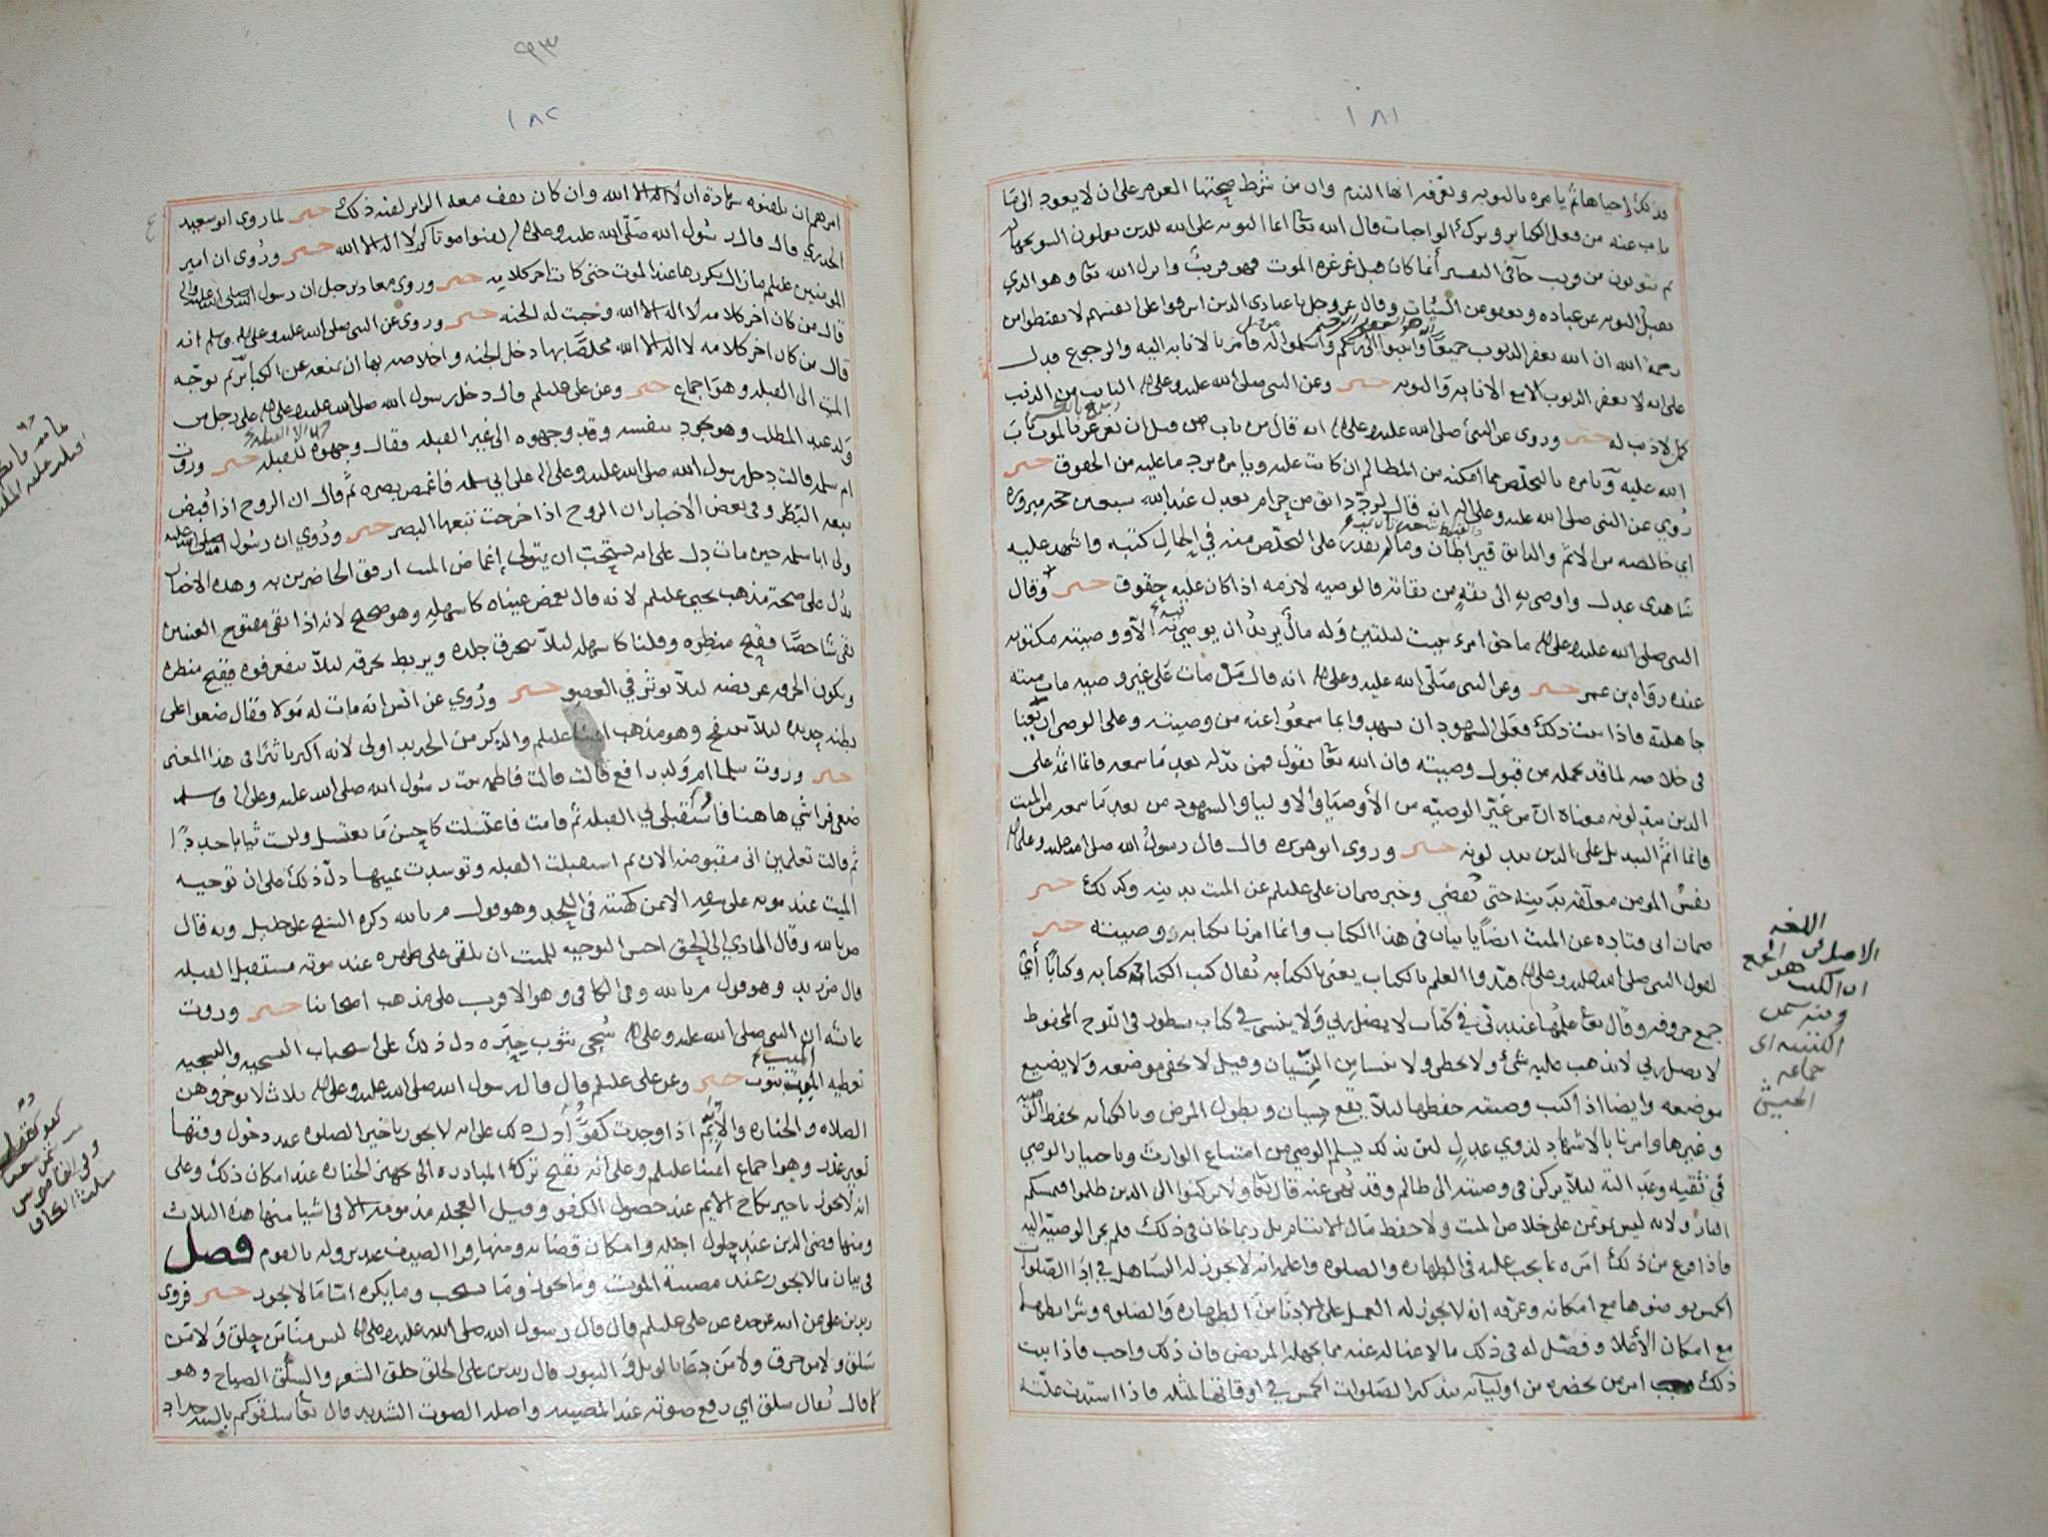 ١٨١
فذلك احياها ثم يامره بالتوبه وتعرفه انها الندم وان من شرط صحتها العزم على ان لا يعود الى ما
تاب عنه من فعل الكبائر وترك الواجبات قال الله تعا انما التوبه على الله للذين يعملون السو بجهالة
ثم يتوبون من قريب جآ في التفسير أنما كان قبل غرغرة الموت فهو قريبٌ وانزل الله تعا وهو الذي
يقبل التوبه عن عباده ويعفو عن السيّات وقال عز وجل يا عبادي الذين اسرفوا على انفسهم لا تقنطوا من
رحمة الله ان الله يغفر الذنوب جميعًا وانيبوا الى ربكم واسلموا له فامر بالانابه اليه والرجوع فدل
انه هو الغفور الرحيم
على انه لا يغفر الذنوب الا مع الانابه والتوبه خبر وعن النبي صلى الله عليه وعلى اله التايب من الذنب
كمن لا ذنب له خبر وروي عن النبي صلى الله عليه وعلى اله انه قال من تاب قبل ان يغرغر بالموت تابَ
الله عليه ويامره بالتخلّص مما امكنه من المظالم ان كانت عليه ويامره برد ما عليه من الحقوق خبر
رُوي عن النبي صلى الله عليه وعلى اله انه قال لردّ دانق من حرام يعدل عند الله سبعين حجه مبروره
اي خالصه من الاثم والدانق قيراطان وما لم يقدر على التخلّص منه في الحال كتبه واشهد عليه
شاهدي عدل واوصى به الى ثقةٍ من ثقاته فالوصيه لازمه اذا كان عليه حقوق خبر وقال
النبي صلى الله عليه وعلى اله ما حق امرء يبيت ليلتين وَله مالٌ يريد ان يوصي فيه الا ووصيته مكتوبه
عنده رواه بن عمر خبر وعن النبي صَلّى الله عليه وعلى اله انه قال مَنْ مات عَلى غير وصيه مات ميته
جاهليه فاذا ثبت ذلك فعلى الشهود ان يشهدوا بما سمعُوا عنه من وصيته وعلى الوصي ان يُعنا
في خلاصه لما قد تحمله من قبول وصيته فان الله تعا يقول فمن بدّله بعد مَا سمعه فانما اثمه على
الذين يبدّلونه معناه انّ من غيّر الوصيّه من الأوصيَا والاوليا والشهود من بعد مَا سمعه من الميت
فانما اثمُ التبديل على الذين يبدلونه خبر وروى ابو هريره قال قال رسولُ الله صلى الله عليه وعلى اله
نفسُ المومن معلّقه بدَينه حتى تُقضي وخبر ضمان على عليلم عن الميت بدينه وكذلك خبر
ضمان ابي قتاده عن الميت ايضًا ياتيان في هذا الكتاب وانما امرنا بكتابه وصيته خبر
لقول النبي صلى الله عليه وعلى اله قيّدوا العلم بالكتاب يعني بالكتابه يُقال كتب الكتاب كتابه وكتابًا أيْ
جمع حروفه وقال تعا علمُها عند ربّي في كتَاب لا يضل ربي وَلا ينسى في كتاب مسطور في اللّوح المحفوظ
لا يضل ربي لا يذهب عليه شئ ولا يخطى ولا ينسا من النِّسْيان وقيل لا يخفى موضعه ولا يضيع
موضعه وايضا اذا كتب وصيته حفظها ليلاّ يقع نسيان ويطول المرض وبالكتابه تحفظ
وغيرها وامرنا بالاشهاد لذوي عدلٍ لئن بذلك يسلم الوصي من امتناع الوارث وباختيار الوصي
في ثقته وعَدالته ليلاّ يركن في وصيته الى ظالم وقد نُهي عنه قال تعا ولا تركنوا الى الذين ظلموا فتمسكم
النار ولانه ليس بموتمن على خلاص الميت ولا حفظ مَال الايتام بل ربما خان في ذلك فلم يجز الوصيّه اليه
فاذا فرغ من ذلك امَره بما يجب عليه في الطهاره والصلوه واعلمه انه لا يجوز له التساهل في اِدَا الصّلوات
الخمس بوضوها مع امكانه وعرّفه انه لا يجوز له العمل على الادنَا منَ الطهاره وَالصلوه وشرايطهما
مع امكان الأعلا وفصّل له في ذلك مالا غنا له عنه مما يجهله المريض فان ذلك واجب فاذا ثبت
ذلك امر من يحضره من اوليآئه بتذكير الصلوات الخمس في اوقاتها لمثله فاذا اشتدت علّته
اللغه
الاصل في
ان الكتب هو الجمع
ومنه سمى
الكتيبه اي
جماعه
الجيش
٩٣
١٨٢
امرهم ان يلقنوه شهادة ان لا اله الا الله وان كان يقف معه الوالد لقنه ذلك خبر لما روى ابو سعيد
الخدري قال قال رسُول الله صَلّى الله عليه وعلى اله لقنوا موتاكم لا اله الا الله خبر ورُوى ان امير
المومنين عليلم ما زال يكررها عند الموت حتى كانت اخر كلامه خبر وروى معاذ بن جبل ان رسول الله صلى الله عليه واله
قال من كان اخر كلامه لا اله الا الله وجبت له الجنه خبر وروى عن النبي صلى الله عليه وعلى اله وسلم انه
قال من كان اخر كلامه لا اله الا الله مخلصًا بها دخل الجنه واخلاصه بها ان تمنعه عن الكبائر ثم توجّه
الميت الى القبله وهو اجماع خبر وعن على عليلم قال دخل رسول الله صلى الله عليه وعلى اله على رجل من
وَلد عبد المطلب وهو يجود بنفسه وقد وجهوه الى غير القبله فقال وجهوه للقبله خبر وروت
ام سلمه قالت دخل رسول الله صلى الله عليه وعلى اله على ابي سلمه فاغمض بصره ثم قال ان الروح اذا قُبض
تبعه النظر وفي بعض الأخبار ان الروح اذا خرجت تبعها البصر خبر ورُوي ان رسُول الله صلى الله عليه
ولى ابا سلمه حين مات دل على انه يستحَبّ ان يتولى إغماض الميت ارفق الحاضرين به وهذه الاخبار
تدُل على صحة مذهب يحيى عليلم لانه قال تغمض عيناه كاسهله وهو صحيح لانه اذا بقى مفتوح العينين
بقى شاخصًا فقبح منظره وقلنا كاسهله ليلاّ ينخرق جلده ويربط بخرقه ليلاّ ينفغر فوه فيقبح منظره
ويكون الخرقه عريضه ليلاّ يوثر في العضو خبر ورُوي عن انس انه مات له مَولا فقال ضعوا على
بطنه حديده ليلاّ ينتفخ وهو مذهب ائمتنا عليلم والذكر من الحديد اولى لانه اكبر تاثيرًا في هذا المعنى
خبر وروت سلما ام ولد رافع قالت قالت فاطمه بنت رسُول الله صلى الله عليه وعلى اله وسلم
ضعى فراشي هاهنا فاسْتقبلى بي القبله ثم قامت فاغتسلت كاحسن مَا تغتسل ولبست ثيابا جددًا
ثم قالت تعلمين انى مقبوضه الان ثم استقبلت القبله وتوسدت يمينها دلّ ذلك على ان توجيه
الميت عند موته على شقه الايمن كهيئته في اللحد وهو قول م بالله ذكره الشيخ على خليل وبه قال
ص بالله وقال الهادي الى الحق احسن التوجيه للميت ان يلقى على ظهره عند موته مستقبل القبله
قال من زيد وهو قول م بالله وفي الكافي وهو الاقرب على مذهب اصحابنا خبر وروت
عائشه ان النبي صلى الله عليه وعلى اله سُجّى بثوب حِبَره دل ذلك على استحباب التسجيه والتسجيه
تغطيه الميت بثوب خبر وعن على عليلم قال قال رسول الله صلى الله عليه وعلى اله ثلاث لا توخروهن
الصلاه والجنازه والاَيِّم اذا وجدت كفوًّا دل ذلك على انه لا يجوز تاخير الصلوه عند دخول وقتها
لغير عذر وهو اجماع ائمتنا عليلم وعلى انه يقبح ترك المبادره الى تجهيز الجنازه عند امكان ذلك وعلى
انه لا يجوز تاخير نكاح الايم عند حصول الكفو وقيل العجله مذمومه الا في اشيا منها هذه الثلاث
ومنها قضى الدين عند حلول اجله وامكان قضائه ومنها قرا الضيف عند نزوله بالقوم فصل
في بيان ما لا يجوز عند مصيبة الموت وما يجوز ومَا يستحب وما يكره امّا مَا لا يجوز خبر فروى
زيد بن على عن ابيه عن جده عن على عليلم قال قال رسول الله صلى الله عليه وعلى اله ليس منّا مَن حلق وَلا مَن
سَلق ولا من خرق ولا مَن دعَا بالويل وَالثبور قال زيد بن على الحلق حلق الشعر والسلق الصياح وهو
قال يُقال سلق اي رفع صوته عند المصيبه واصله الصوت الشديد قال تعا سلقوكم بالسنه حداد